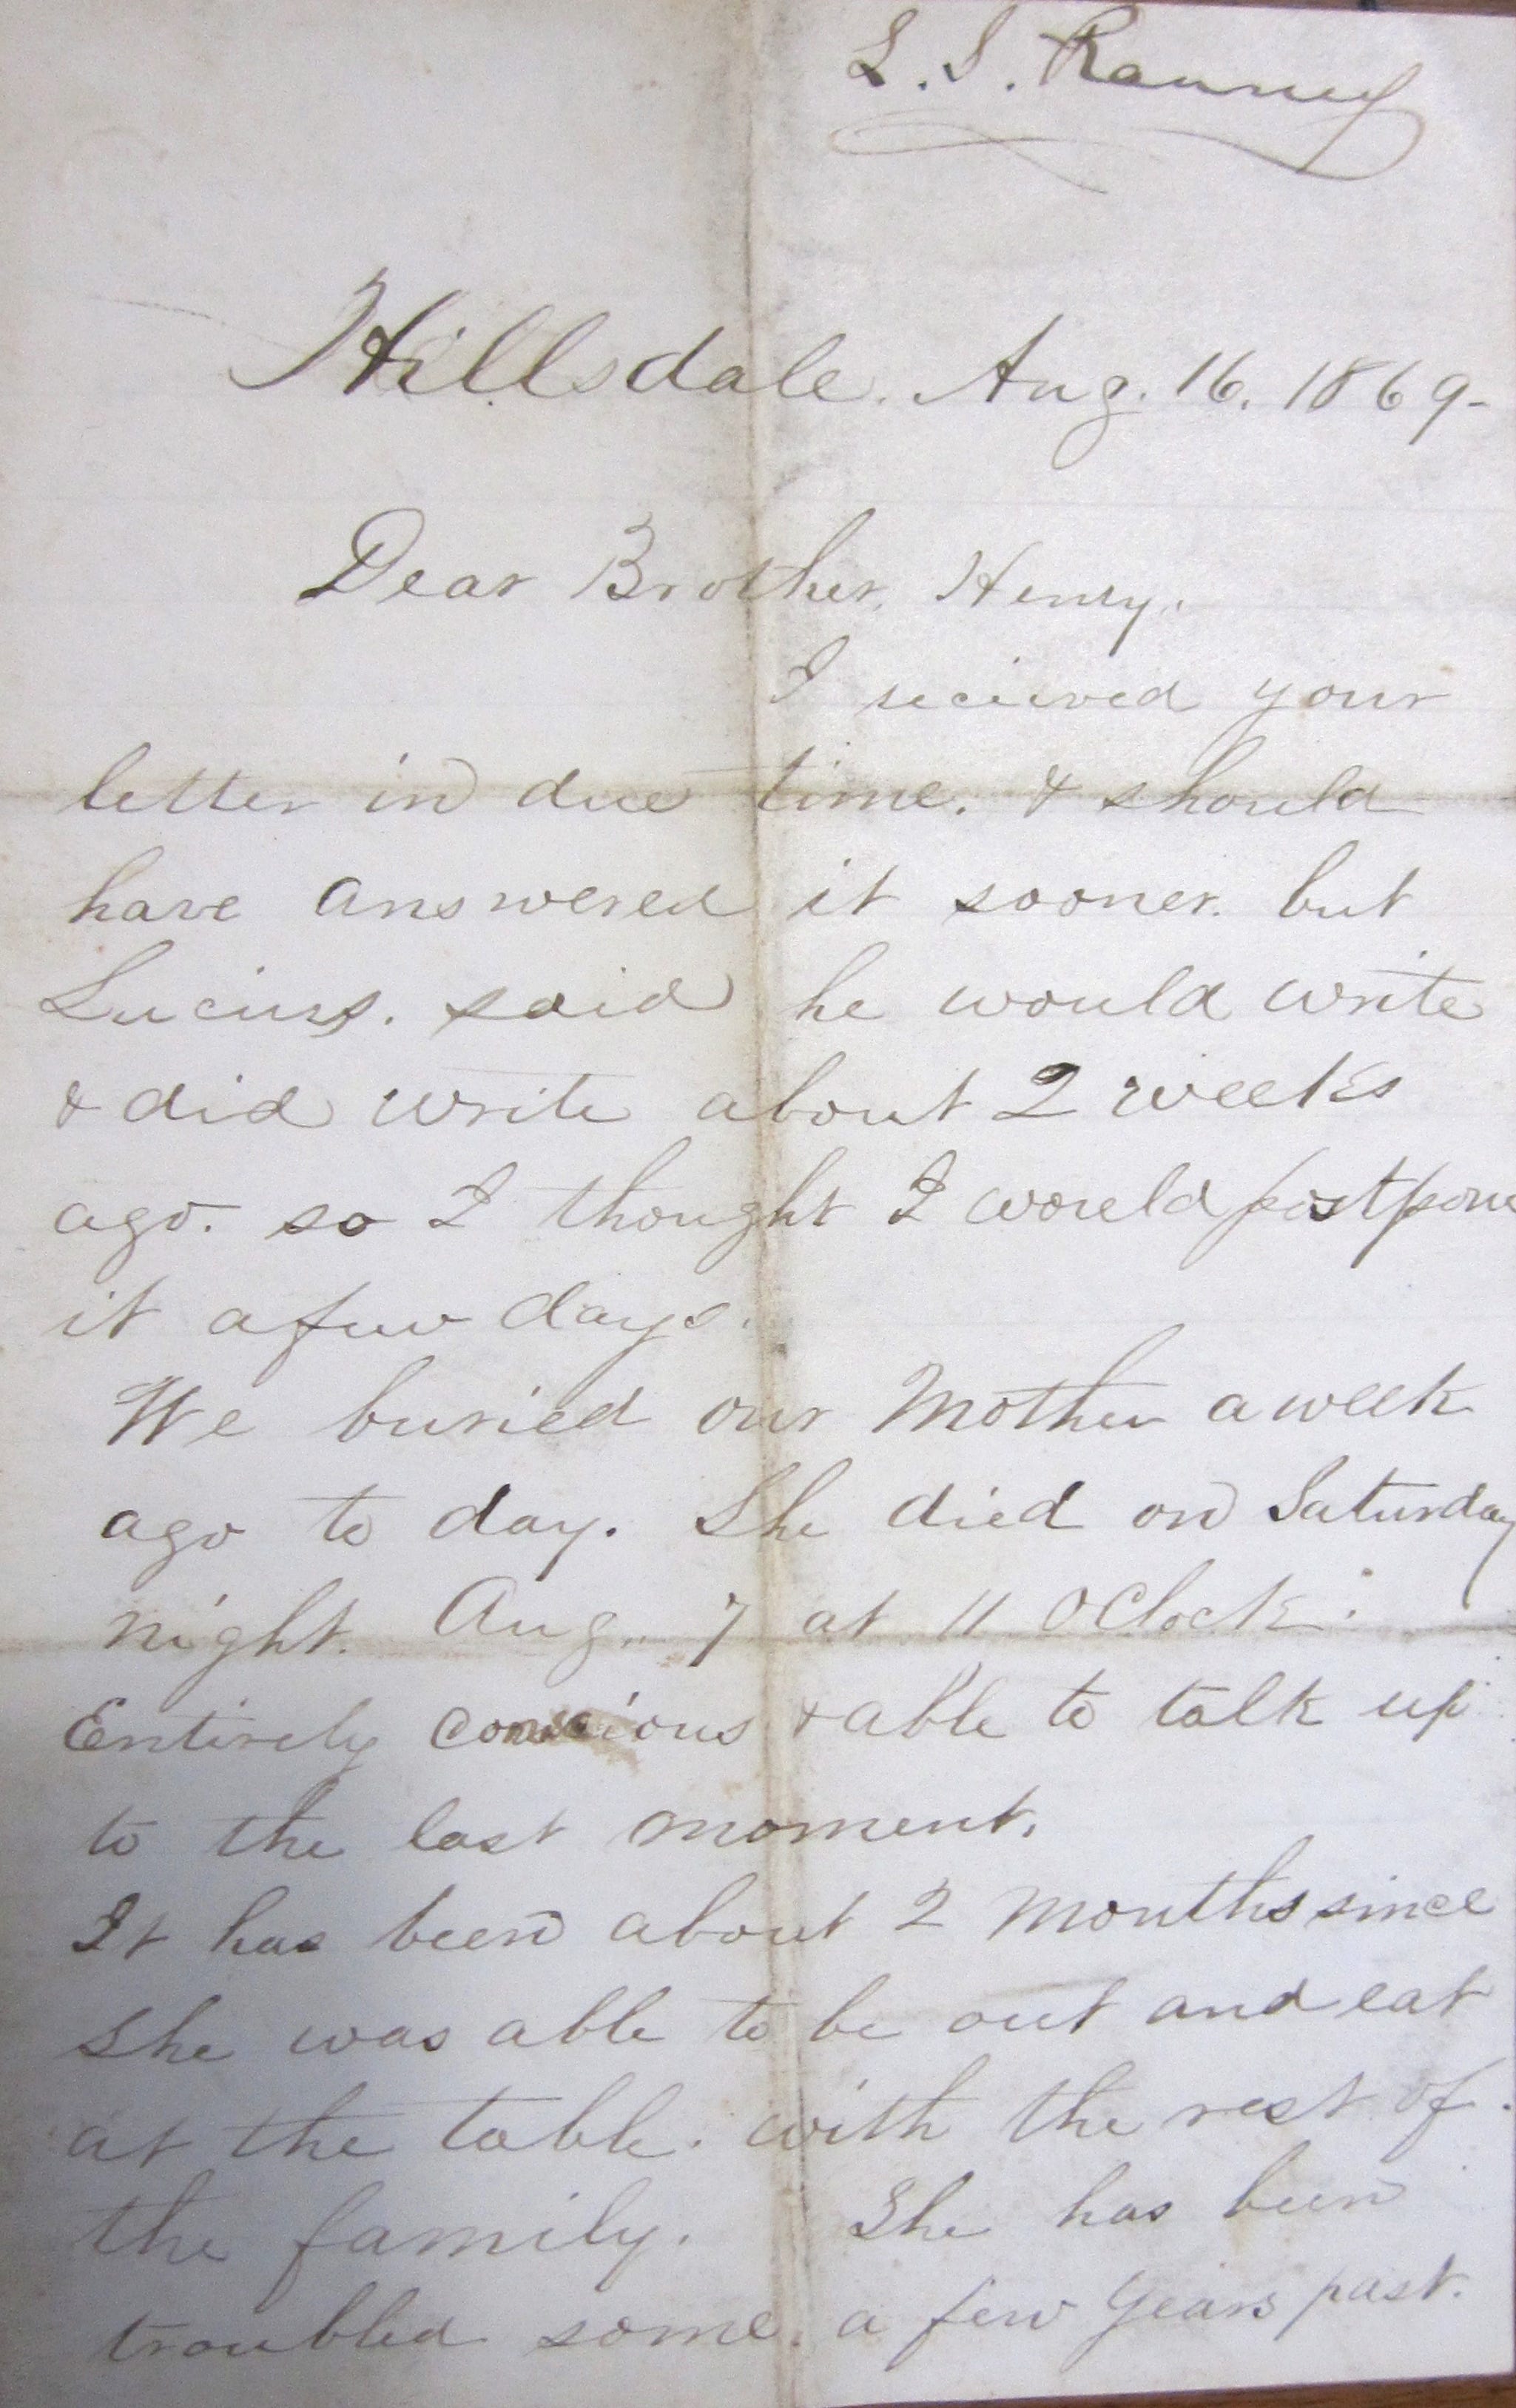 L. S. Ranney
Hillsdale. Aug. 16. 1869-
Dear Brother. Henry.
I recieved your
letter in due time. & should
have answered it sooner. but
Lucius. said he would write
& did write about 2 weeks
ago. so I thought I would postpone
it a few days.
We buried our Mother a week
ago to day. She died on Saturday
night. Aug. 7 at 11 OClock.
Entirely concious & able to talk up
to the last moment.
It has been about 2 Months since
she was able to be out and eat
at the table. with the rest of.
the family. She has been
troubled some. a few years past.